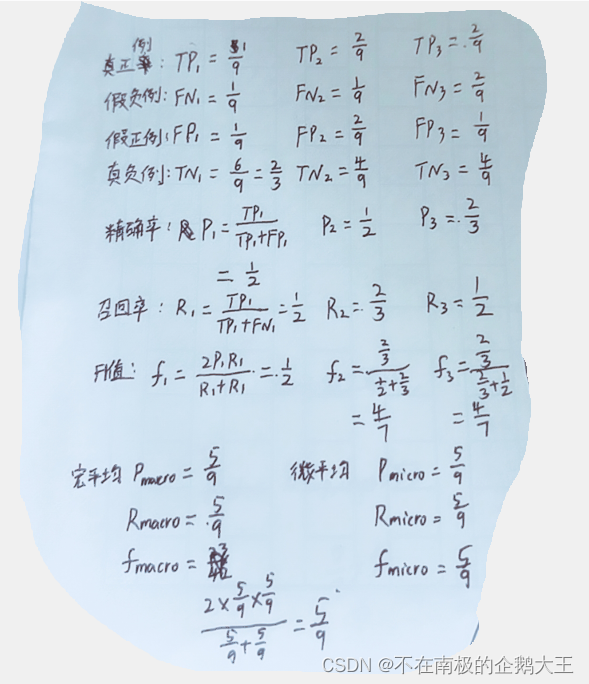 例
真正率: TP₁ = 1/9 TP₂ = 2/9 TP₃ = 2/9
假负例: FN₁ = 1/9 FN₂ = 1/9 FN₃ = 2/9
假正例: FP₁ = 1/9 FP₂ = 2/9 FP₃ = 1/9
真负例: TN₁ = 6/9 = 2/3 TN₂ = 4/9 TN₃ = 4/9
精确率: P₁ = TP₁/(TP₁+FP₁) P₂ = 1/2 P₃ = 2/3
= 1/2
召回率: R₁ = TP₁/(TP₁+FN₁) = 1/2 R₂ = 2/3 R₃ = 1/2
F1值: f₁ = 2P₁R₁/(R₁+R₁) = 1/2 f₂ = (2/3)/(1/2+2/3) f₃ = (2/3)/(2/3+1/2)
= 4/7 = 4/7
宏平均 Pmacro = 5/9 微平均 Pmicro = 5/9
Rmacro = 5/9 Rmicro = 5/9
fmacro = fmicro = 5/9
(2×5/9×5/9)/(5/9+5/9) = 5/9
CSDN @不在南极的企鹅大王